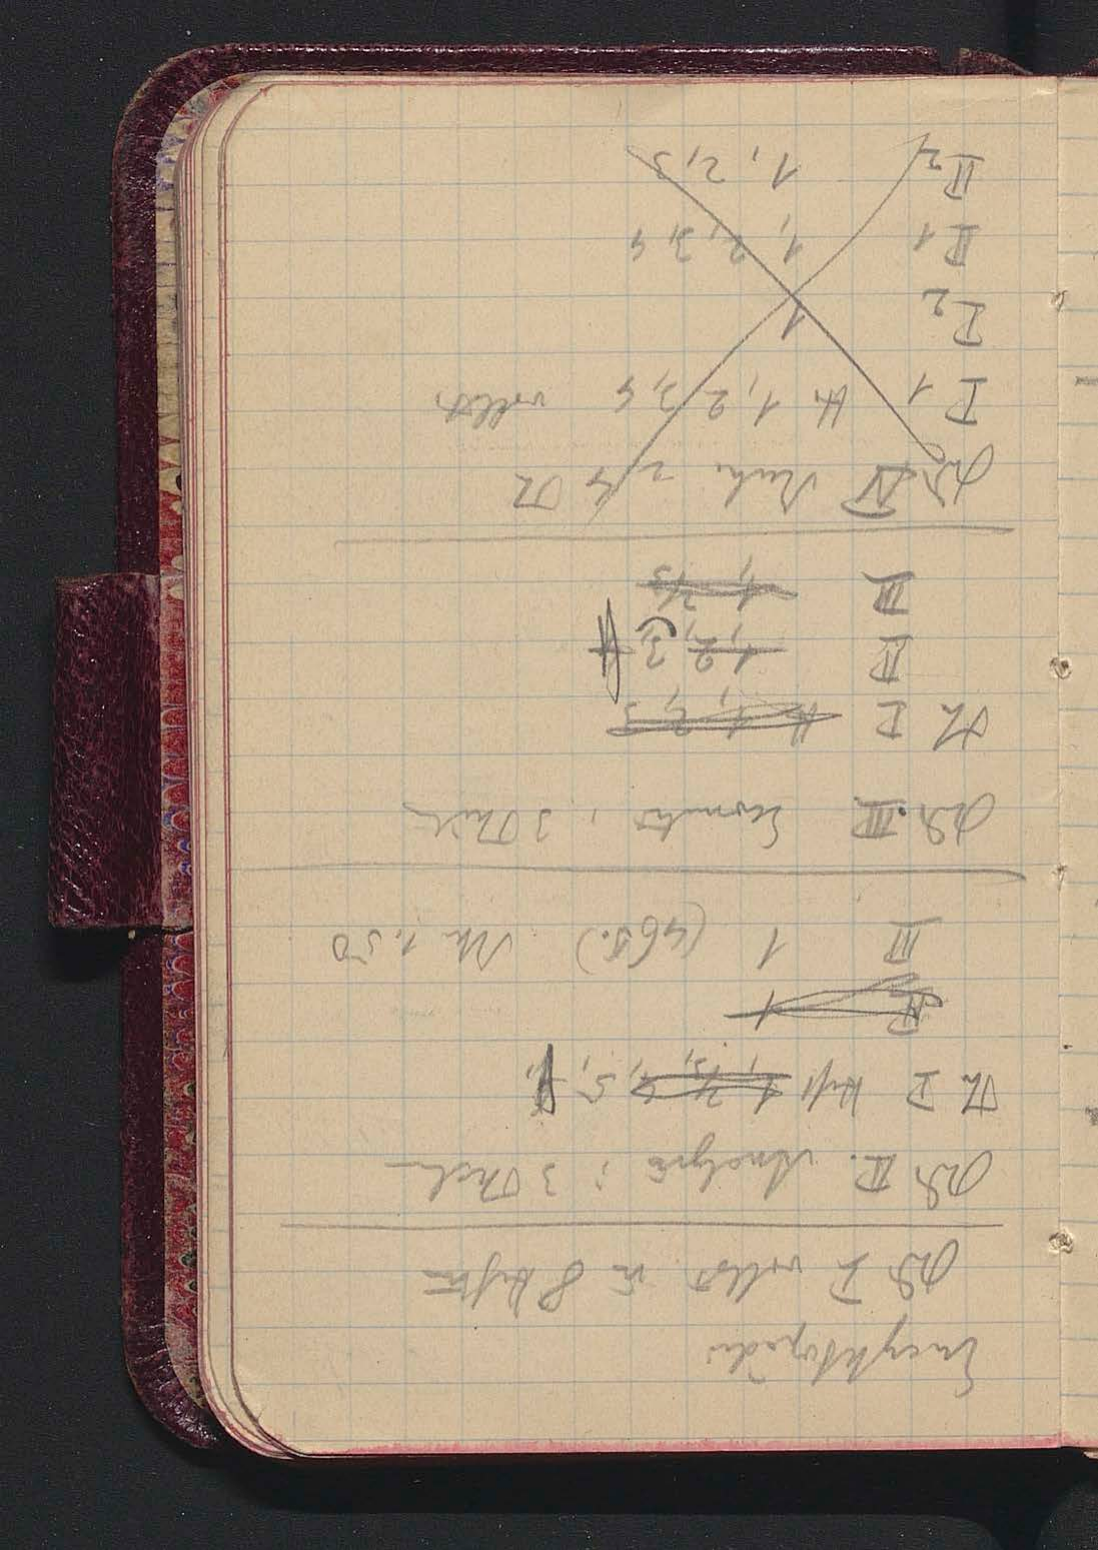 Encyklopädie
Bd. I vollst. in 8 Heften
Bd. II. Analysis ; 3 Theile
Th I Heft 1, 2/3, 4, 5,
II 1
III 1 (46 S.) Mk 1.50
Bd. III Geometrie ; 3 Theile
Th I H. 1, 2, 3
II 1, 2, 3,
III 1, 2/3
Bd. IV Mech. 2/4 Th
I 1 H. 1, 2, 3, 4 vollst.
I 2 1
II 1 1, 2, 3, 4
II 2 1, 2, 3